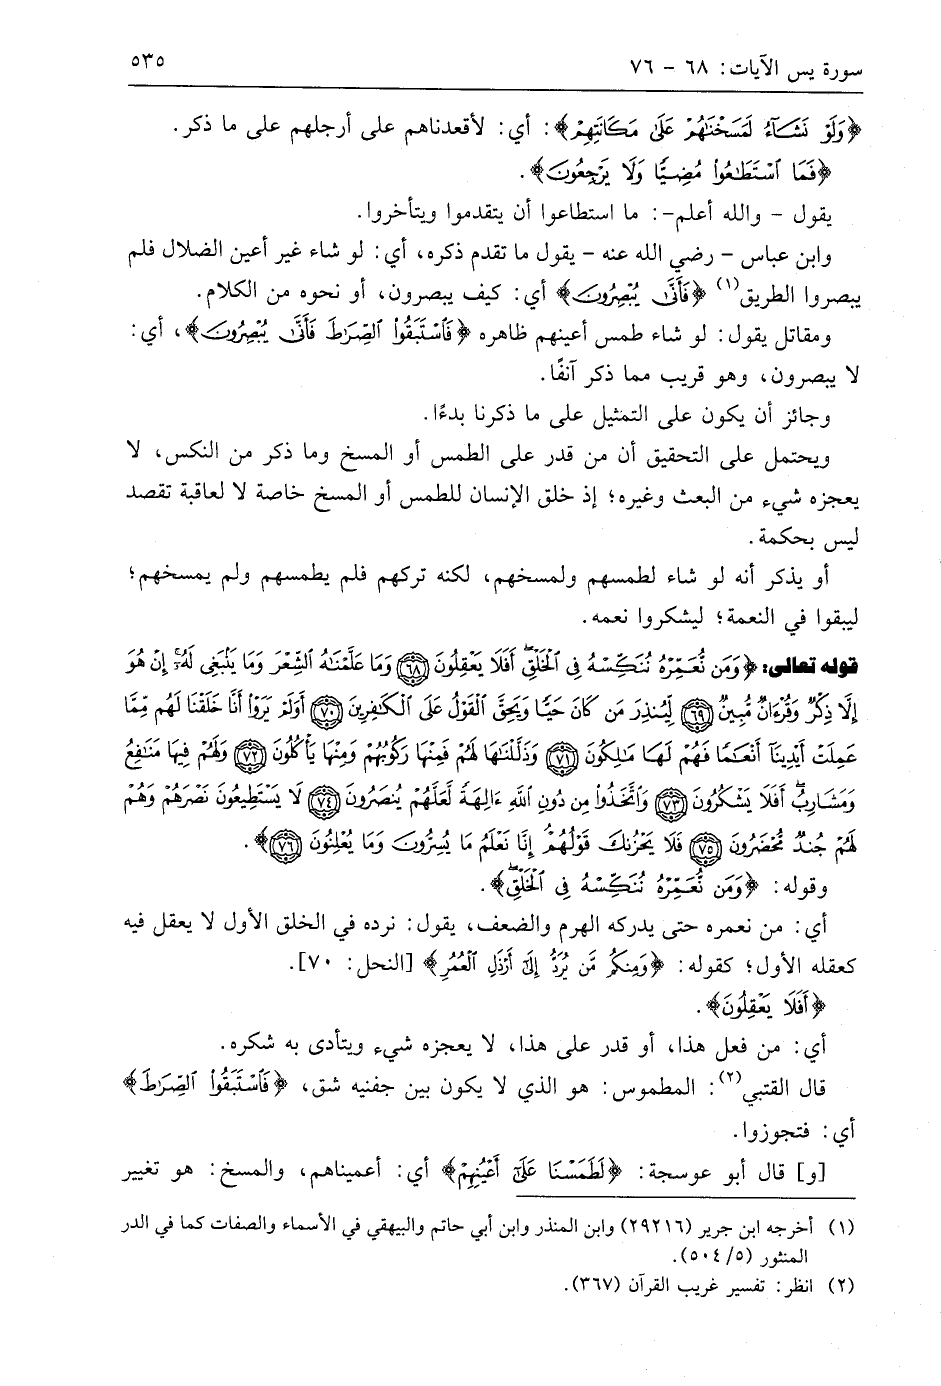 سورة يس الآيات: ٦٨ - ٧٦ ٥٣٥
﴿وَلَوْ نَشَآءُ لَمَسَخْنَٰهُمْ عَلَىٰ مَكَانَتِهِمْ﴾: أي: لأقعدناهم على أرجلهم على ما ذكر.
﴿فَمَا ٱسْتَطَٰعُوا۟ مُضِيًّا وَلَا يَرْجِعُونَ﴾.
يقول - والله أعلم-: ما استطاعوا أن يتقدموا ويتأخروا.
وابن عباس - رضي الله عنه - يقول ما تقدم ذكره، أي: لو شاء غير أعين الضلال فلم
يبصروا الطريق(١) ﴿فَأَنَّىٰ يُبْصِرُونَ﴾ أي: كيف يبصرون، أو نحوه من الكلام.
ومقاتل يقول: لو شاء طمس أعينهم ظاهره ﴿فَٱسْتَبَقُوا۟ ٱلصِّرَٰطَ فَأَنَّىٰ يُبْصِرُونَ﴾، أي:
لا يبصرون، وهو قريب مما ذكر آنفًا.
وجائز أن يكون على التمثيل على ما ذكرنا بدءًا.
ويحتمل على التحقيق أن من قدر على الطمس أو المسخ وما ذكر من النكس، لا
يعجزه شيء من البعث وغيره؛ إذ خلق الإنسان للطمس أو المسخ خاصة لا لعاقبة تقصد
ليس بحكمة.
أو يذكر أنه لو شاء لطمسهم ولمسخهم، لكنه تركهم فلم يطمسهم ولم يمسخهم؛
ليبقوا في النعمة؛ ليشكروا نعمه.
قوله تعالى: ﴿وَمَن نُّعَمِّرْهُ نُنَكِّسْهُ فِى ٱلْخَلْقِ ۖ أَفَلَا يَعْقِلُونَ ٦٨ وَمَا عَلَّمْنَٰهُ ٱلشِّعْرَ وَمَا يَنۢبَغِى لَهُۥٓ ۚ إِنْ هُوَ
إِلَّا ذِكْرٌ وَقُرْءَانٌ مُّبِينٌ ٦٩ لِّيُنذِرَ مَن كَانَ حَيًّا وَيَحِقَّ ٱلْقَوْلُ عَلَى ٱلْكَٰفِرِينَ ٧٠ أَوَلَمْ يَرَوْا۟ أَنَّا خَلَقْنَا لَهُم مِّمَّا
عَمِلَتْ أَيْدِينَآ أَنْعَٰمًا فَهُمْ لَهَا مَٰلِكُونَ ٧١ وَذَلَّلْنَٰهَا لَهُمْ فَمِنْهَا رَكُوبُهُمْ وَمِنْهَا يَأْكُلُونَ ٧٢ وَلَهُمْ فِيهَا مَنَٰفِعُ
وَمَشَارِبُ ۖ أَفَلَا يَشْكُرُونَ ٧٣ وَٱتَّخَذُوا۟ مِن دُونِ ٱللَّهِ ءَالِهَةً لَّعَلَّهُمْ يُنصَرُونَ ٧٤ لَا يَسْتَطِيعُونَ نَصْرَهُمْ وَهُمْ
لَهُمْ جُندٌ مُّحْضَرُونَ ٧٥ فَلَا يَحْزُنكَ قَوْلُهُمْ ۘ إِنَّا نَعْلَمُ مَا يُسِرُّونَ وَمَا يُعْلِنُونَ ٧٦﴾.
وقوله: ﴿وَمَن نُّعَمِّرْهُ نُنَكِّسْهُ فِى ٱلْخَلْقِ ۖ﴾.
أي: من نعمره حتى يدركه الهرم والضعف، يقول: نرده في الخلق الأول لا يعقل فيه
كعقله الأول؛ كقوله: ﴿وَمِنكُم مَّن يُرَدُّ إِلَىٰٓ أَرْذَلِ ٱلْعُمُرِ﴾ [النحل: ٧٠].
﴿أَفَلَا يَعْقِلُونَ﴾.
أي: من فعل هذا، أو قدر على هذا، لا يعجزه شيء ويتأدى به شكره.
قال القتبي(٢): المطموس: هو الذي لا يكون بين جفنيه شق، ﴿فَٱسْتَبَقُوا۟ ٱلصِّرَٰطَ﴾
أي: فتجوزوا.
[و] قال أبو عوسجة: ﴿لَطَمَسْنَا عَلَىٰٓ أَعْيُنِهِمْ﴾ أي: أعميناهم، والمسخ: هو تغيير
(١) أخرجه ابن جرير (٢٩٢١٦) وابن المنذر وابن أبي حاتم والبيهقي في الأسماء والصفات كما في الدر
المنثور (٥٠٤/٥).
(٢) انظر: تفسير غريب القرآن (٣٦٧).